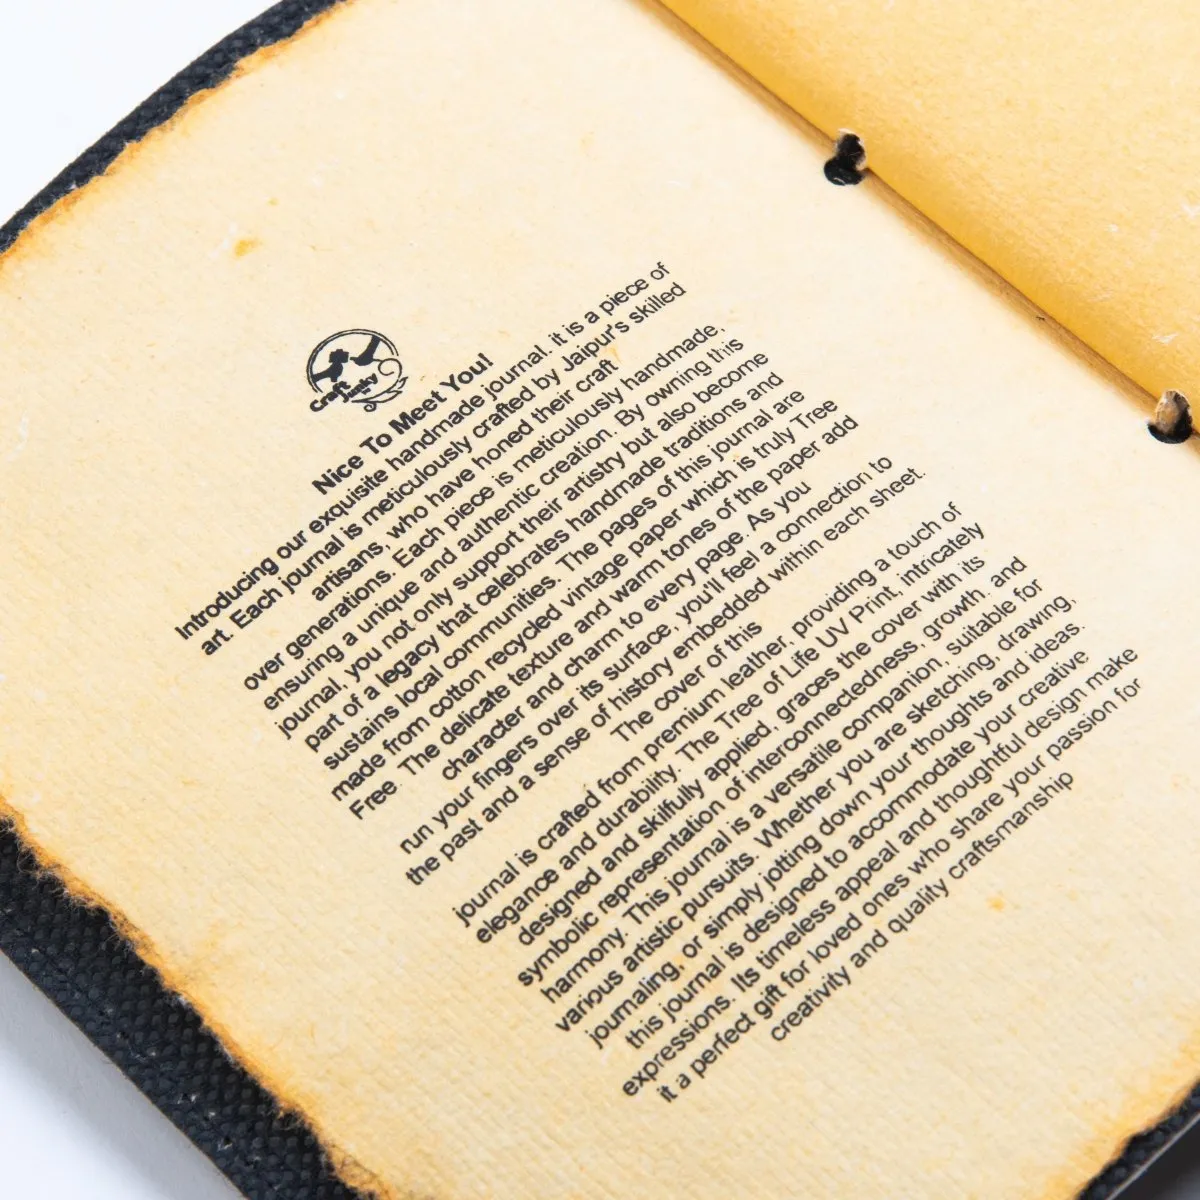 Craft
Junky
Nice To Meet You!
Introducing our exquisite handmade journal. it is a piece of
art. Each journal is meticulously crafted by Jaipur's skilled
artisans, who have honed their craft
over generations. Each piece is meticulously handmade,
ensuring a unique and authentic creation. By owning this
journal, you not only support their artistry but also become
part of a legacy that celebrates handmade traditions and
sustains local communities. The pages of this journal are
made from cotton recycled vintage paper which is truly Tree
Free. The delicate texture and warm tones of the paper add
character and charm to every page. As you
run your fingers over its surface, you'll feel a connection to
the past and a sense of history embedded within each sheet.
The cover of this
journal is crafted from premium leather, providing a touch of
elegance and durability. The Tree of Life UV Print, intricately
designed and skilfully applied, graces the cover with its
symbolic representation of interconnectedness, growth. and
harmony. This journal is a versatile companion, suitable for
various artistic pursuits. Whether you are sketching, drawing,
journaling, or simply jotting down your thoughts and ideas.
this journal is designed to accommodate your creative
expressions. Its timeless appeal and thoughtful design make
it a perfect gift for loved ones who share your passion for
creativity and quality craftsmanship